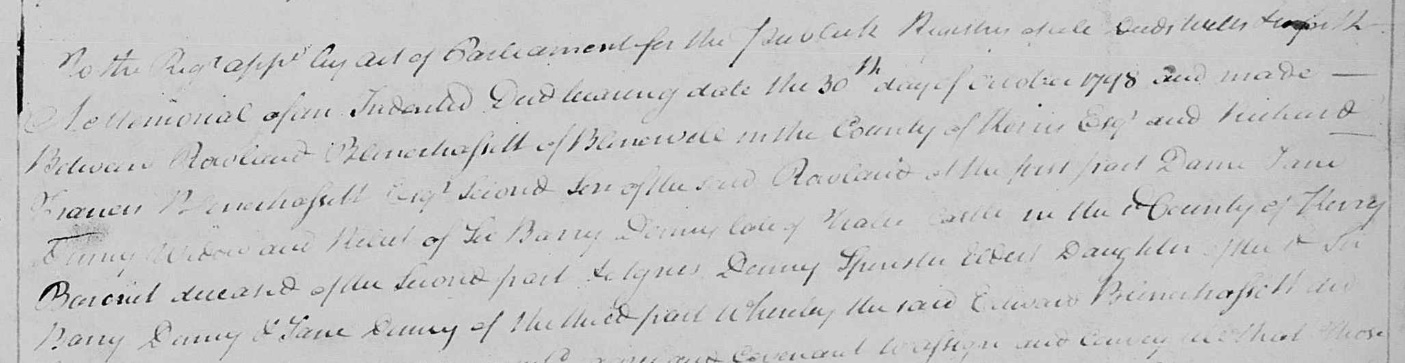 To the Regr appd by act of Parliament for the Publick Registry of all Deeds Wills & so forth
A Memorial of an Indented Deed bearing date the 30th day of October 1798 and made —
Between Rowland Blenerhassett of Blenerville in the County of Kerry Esqr and Richard
Francis Blenerhassett Esqr second son of the said Rowland of the first part Dame Jane
Denny Widow and Relict of Sir Barry Denny late of Tralee Castle in the sd County of Kerry
Baronet deceased of the second part & Agnes Denny Spinster Eldest Daughter of the sd Sir
Barry Denny & Jane Denny of the third part Whereby the said Edward Blenerhassett did
and Covenant to assign and Convey all that those